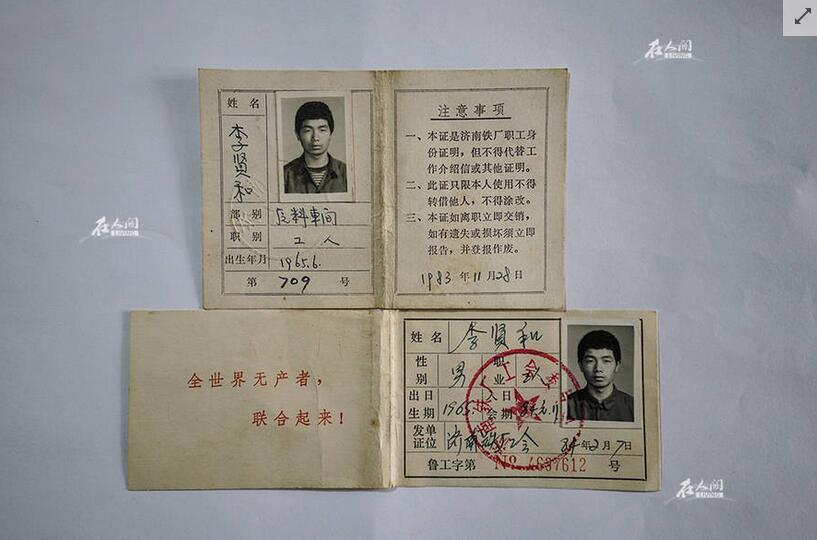 在人间
LIVING
姓名
李贤和
部别
原料車间
职别
工人
出生年月
1965.6.
第 709 号
注意事项
一、本证是济南铁厂职工身
份证明，但不得代替工
作介绍信或其他证明。
二、此证只限本人使用不得
转借他人，不得涂改。
三、本证如离职立即交销，
如有遗失或损坏须立即
报告，并登报作废。
1983年11月28日
在人间
LIVING
全世界无产者，
联合起来！
姓名 李贤和
性别 男 职业 工人
出生日期 1965. 入会日期
发证单位 济南铁 工会 84年2月7日
鲁工字第 No 4637612 号
在人间
LIVING